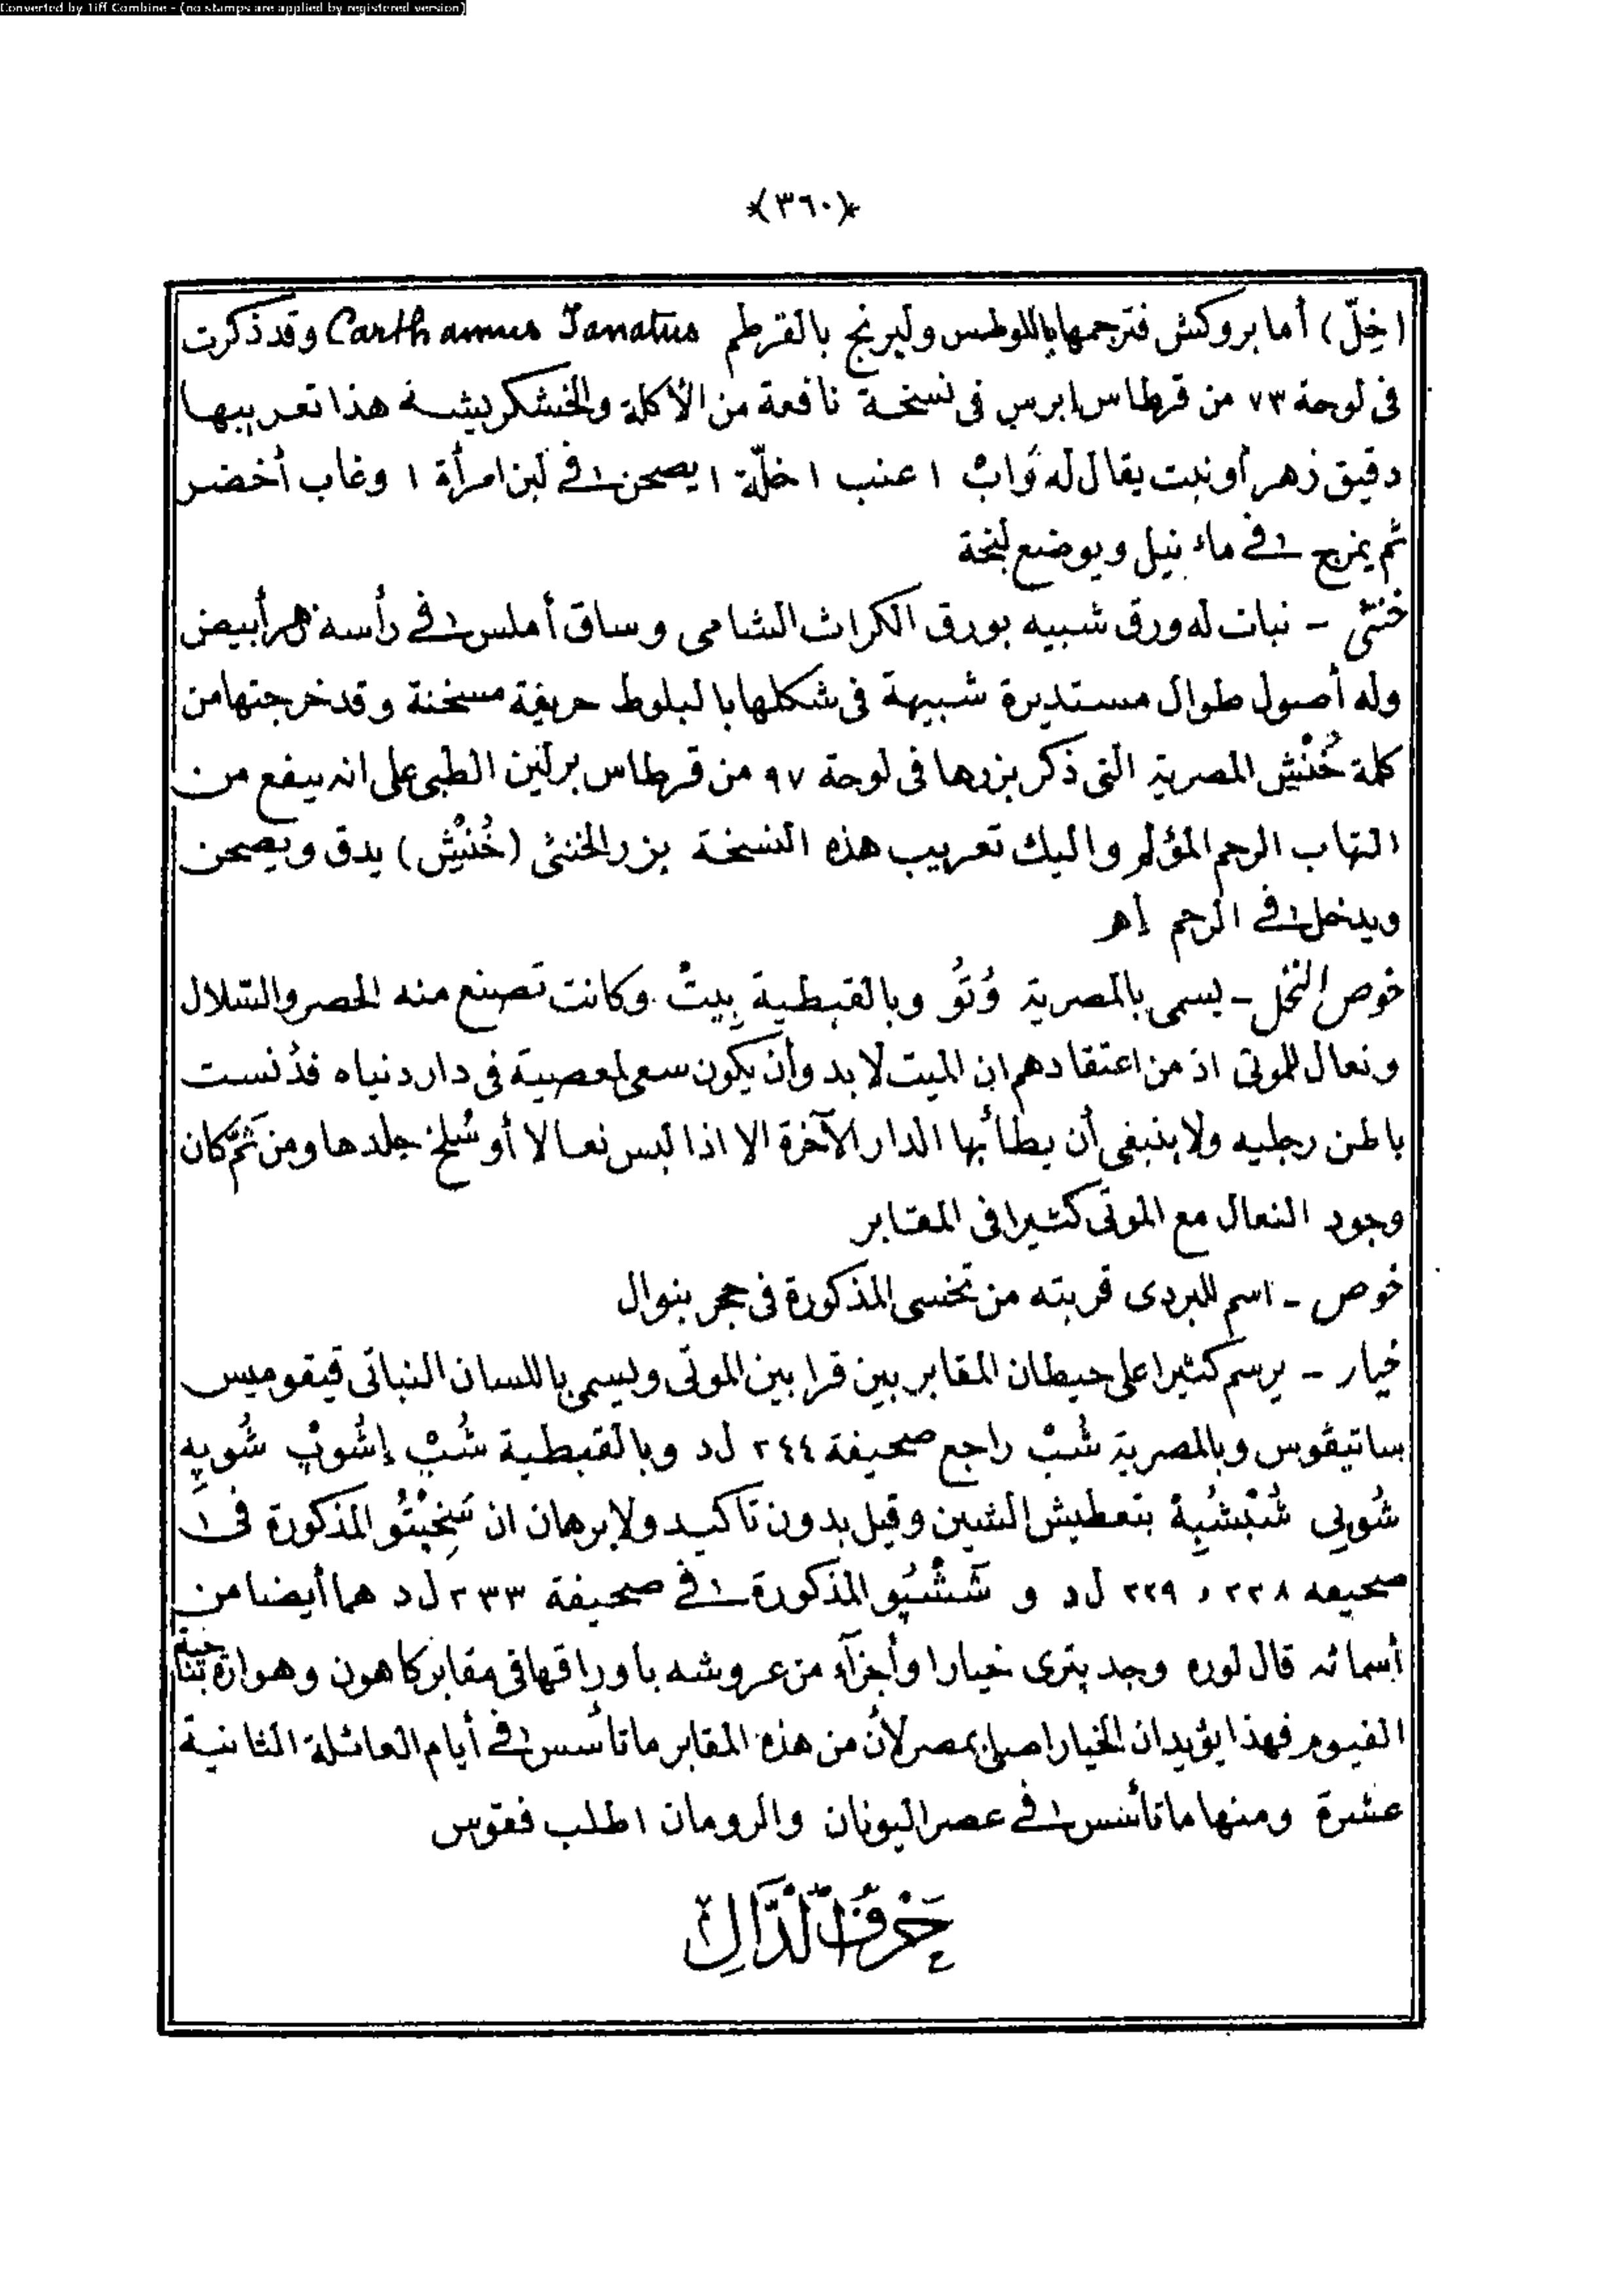 Converted by Tiff Combine - (no stamps are applied by registered version)
*(٣٦٠)*
(خِلّ) أما بروكش فترجمها باللوطس وليرنج بالقرطم Carthamus Tanatus وقد ذكرت
فى لوحة ٧٣ من قرطاس ابرس فى نسخة نافعة من الأكلة والخشكريشة هذا تعريبها
دقيق زهر أو نبت يقال له ١ عنب ١ خلّة ١ يصحن فى لبن امرأة ١ وغاب أخضر
ثم يمزج فى ماء نيل ويوضع لبخة
خنثى - نبات له ورق شبيه بورق الكراث الشامى وساق أملس فى رأسه زهر أبيض
وله أصول طوال مستديرة شبيهة فى شكلها بالبلوط حريفة مسخنة وقد خرجتها من
كلمة خُنْتِش المصرية التى ذكر بزرها فى لوحة ٩٧ من قرطاس برلين الطبى على انه ينفع من
التهاب الرحم المؤلم واليك تعريب هذه النسخة بزر الخنثى (خُنتِش) يدق ويصحن
ويدخل فى الرحم إهـ
خوص النخل - يسمى بالمصرية وُتوُ وبالقبطية بِيتْ وكانت تصنع منه الحصر والسّلال
ونعال للموتى اذ من اعتقادهم ان الميت لا بد وأن يكون سعى لمعصية فى دار دنياه فدُنست
باطن رجليه ولا ينبغى أن يطأ بها الدار الآخرة الا اذا لبس نعالا أو سُلخ جلدها ومن ثَمّ كان
وجود النعال مع الموتى كثيرا فى المقابر
خوص - اسم للبردى قربته من تخسى المذكورة فى حجر بنوال
خيار - يرسم كثيرا على حيطان المقابر بين قرابين الموتى ويسمى باللسان النباتى قيقوميس
ساتيڤوس وبالمصرية شُبْ راجع صحيفة ٢٤٤ ل د وبالقبطية شُبْ إشُوبْ شُوبِه
شُوبى شُبْشُبِة بتعطيش الشين وقيل بدون تاكيد ولا برهان ان المذكورة فى
صحيفه ٢٢٨ و ٢٢٩ ل د و المذكورة فى صحيفة ٢٣٣ ل د هما أيضا من
أسمائه قال لوره وجد پترى خيارا وأجزآء من عروشه بأوراقها فى مقابر كاهون وهوارة بناحية
الفيوم فهذا يؤيد ان الخيار اصلى بمصر لأن من هذه المقابر ما تأسس فى أيام العائلة الثانية
عشرة ومنها ما تأسس فى عصر اليونان والرومان اطلب فقوس
حَرْفُ الدَّالِ